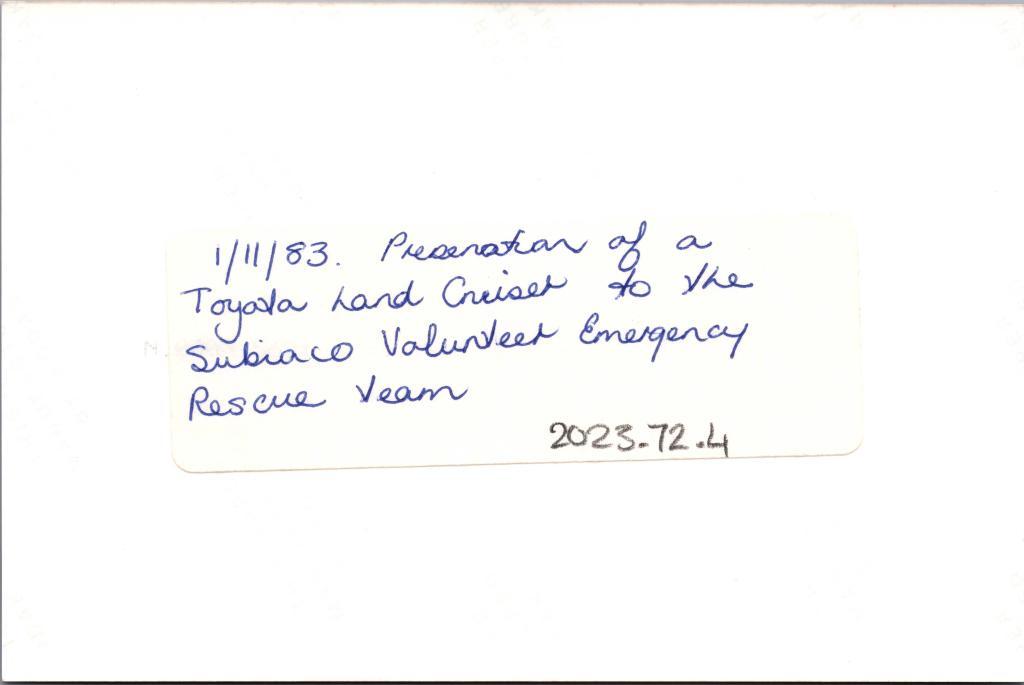 1/11/83. Presenation of a
Toyota Land Cruiser to the
Subiaco Volunteer Emergency
Rescue team
2023.72.4